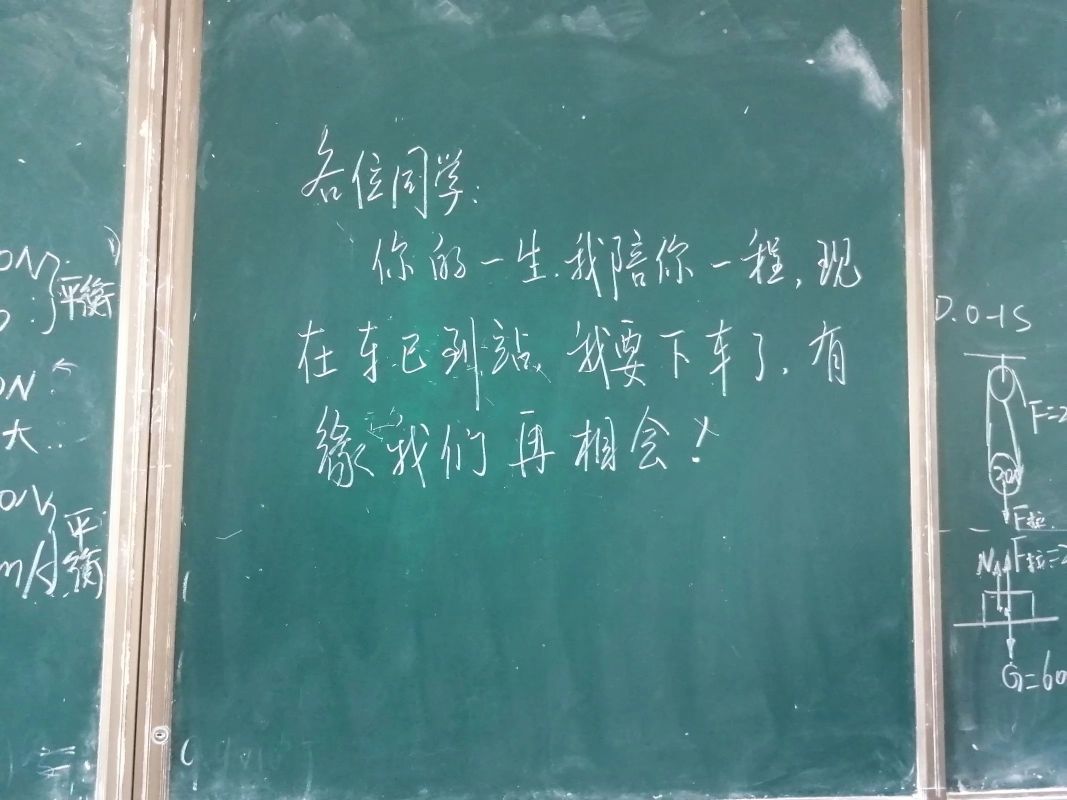 各位同学:
你的一生.我陪你一程,现
在车已到站,我要下车了,有
缘我们再相会!
平衡
大..
平衡
P.0-15
F=2
F拉
N
F拉=2
G=60